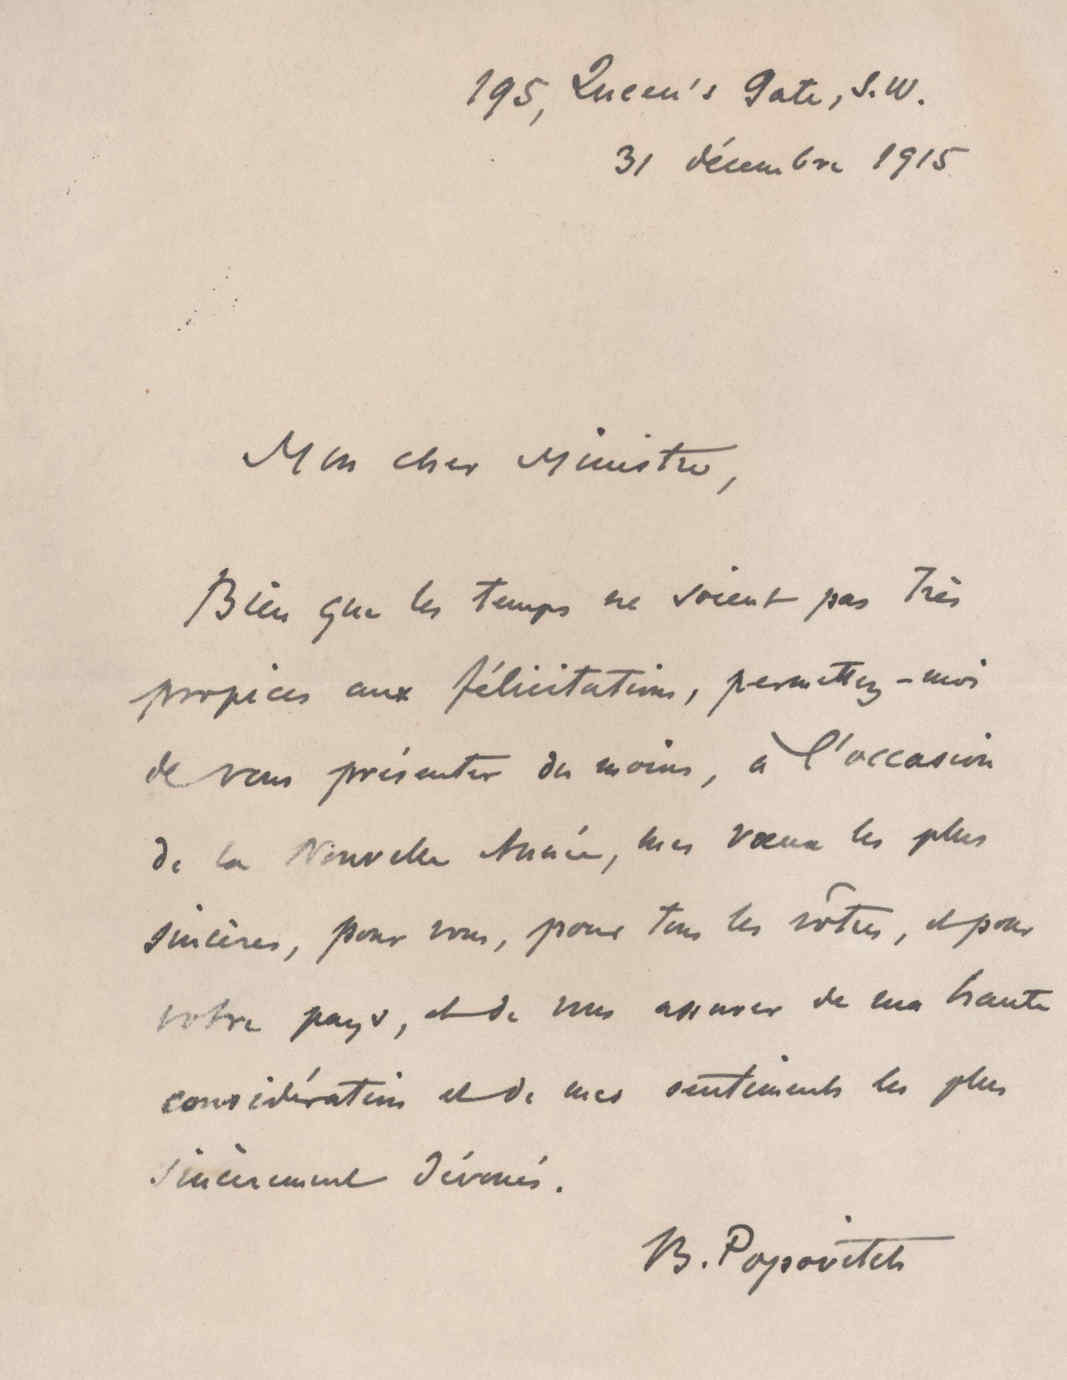 195, Queen's Gate, S.W.
31 décembre 1915
Mon cher Ministre,
Bien que les temps ne soient pas très
propices aux félicitations, permettez-moi
de vous présenter du moins, à l'occasion
de la Nouvelle Année, mes vœux les plus
sincères, pour vous, pour tous les vôtres, et pour
votre pays, et de vous assurer de ma haute
considération et de mes sentiments les plus
sincèrement dévoués.
B. Popovitch